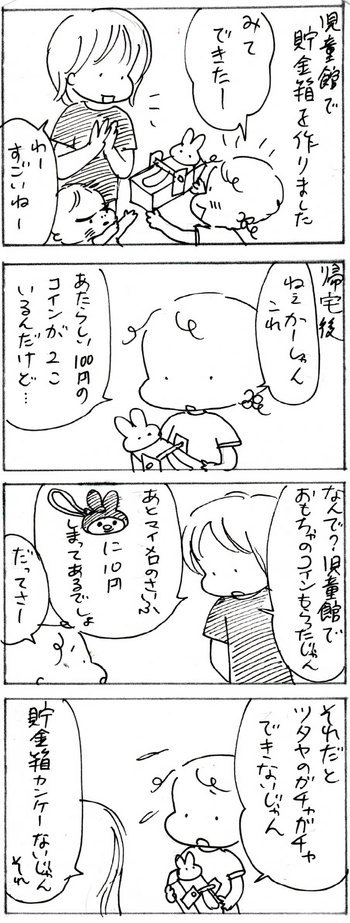 児童館で
貯金箱を作りました
みて
できたー
わー
すごいねー
帰宅後
ねぇかーしゃん
これ
あたらしい100円の
コインが2こ
いるんだけど…
なんで?児童館で
おもちゃのコインもらたじゃん
あとマイメロのさいふ
に10円
しまってあるでしょ
だってさー
それだと
ツタヤのガチャガチャ
できないじゃん
貯金箱カンケーないじゃん
それ